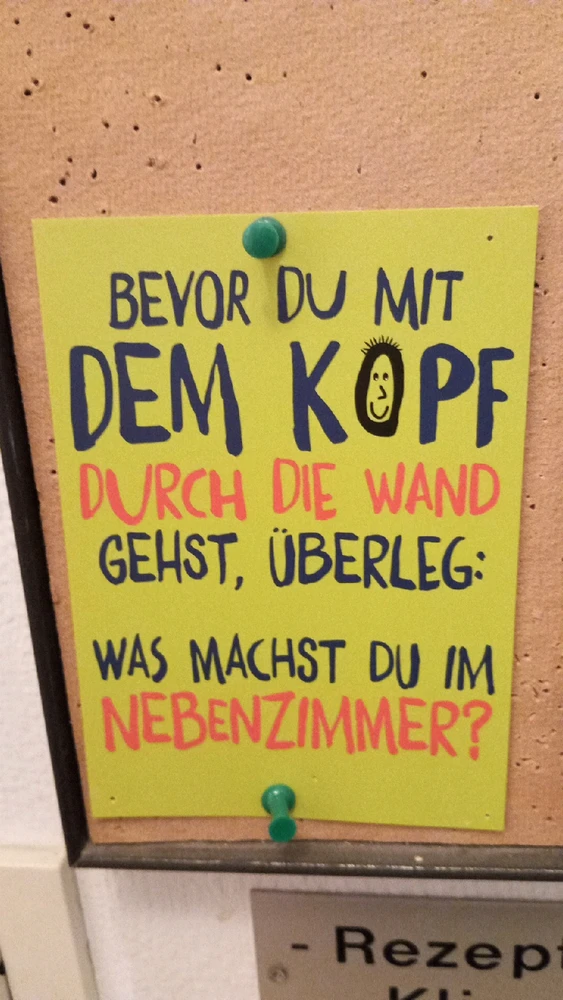 BEVOR DU MIT
DEM KOPF
DURCH DIE WAND
GEHST, ÜBERLEG:
WAS MACHST DU IM
NEBENZIMMER?